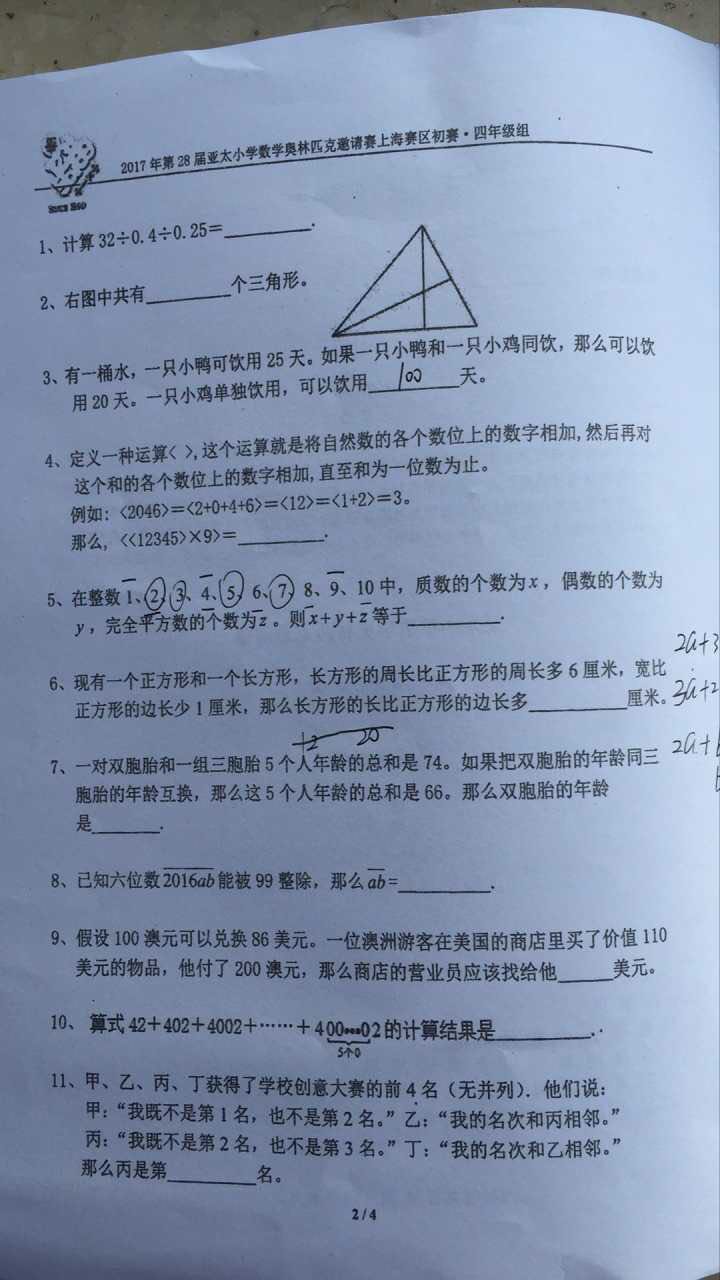 2017年第28届亚太小学数学奥林匹克邀请赛上海赛区初赛·四年级组
1、计算32÷0.4÷0.25=________.
2、右图中共有________个三角形。
3、有一桶水，一只小鸭可饮用25天。如果一只小鸭和一只小鸡同饮，那么可以饮
用20天。一只小鸡单独饮用，可以饮用 100 天。
4、定义一种运算< >,这个运算就是将自然数的各个数位上的数字相加,然后再对
这个和的各个数位上的数字相加,直至和为一位数为止。
例如：<2046>=<2+0+4+6>=<12>=<1+2>=3。
那么，<<12345>×9>=________.
5、在整数1、2、3、4、5、6、7、8、9、10中，质数的个数为x，偶数的个数为
y，完全平方数的个数为z。则x+y+z等于________.
2a+3
6、现有一个正方形和一个长方形，长方形的周长比正方形的周长多6厘米，宽比
正方形的边长少1厘米，那么长方形的长比正方形的边长多________厘米。
3a+2
12 20
7、一对双胞胎和一组三胞胎5个人年龄的总和是74。如果把双胞胎的年龄同三
胞胎的年龄互换，那么这5个人年龄的总和是66。那么双胞胎的年龄
是________.
8、已知六位数2016ab能被99整除，那么ab=________.
9、假设100澳元可以兑换86美元。一位澳洲游客在美国的商店里买了价值110
美元的物品，他付了200澳元，那么商店的营业员应该找给他______美元。
10、算式42+402+4002+……+400…02的计算结果是________.
5个0
11、甲、乙、丙、丁获得了学校创意大赛的前4名（无并列）．他们说：
甲：“我既不是第1名，也不是第2名。”乙：“我的名次和丙相邻。”
丙：“我既不是第2名，也不是第3名。”丁：“我的名次和乙相邻。”
那么丙是第________名。
2/4